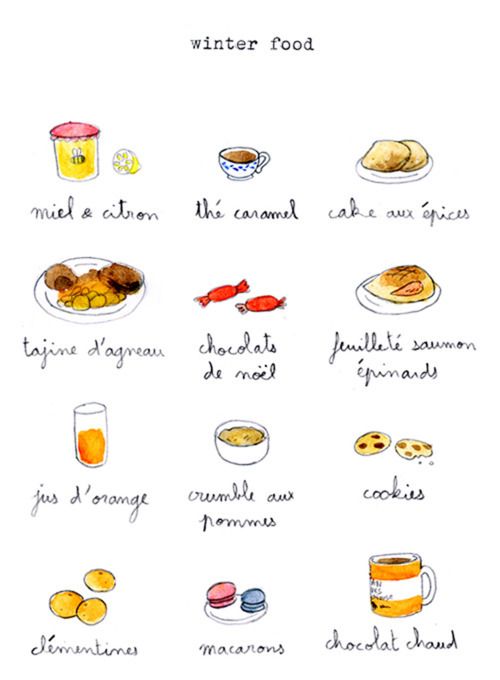 winter food
miel & citron
thé caramel
cake aux épices
tajine d'agneau
chocolats
de noël
feuilleté saumon
épinards
jus d'orange
crumble aux
pommes
cookies
clémentines
macarons
chocolat chaud